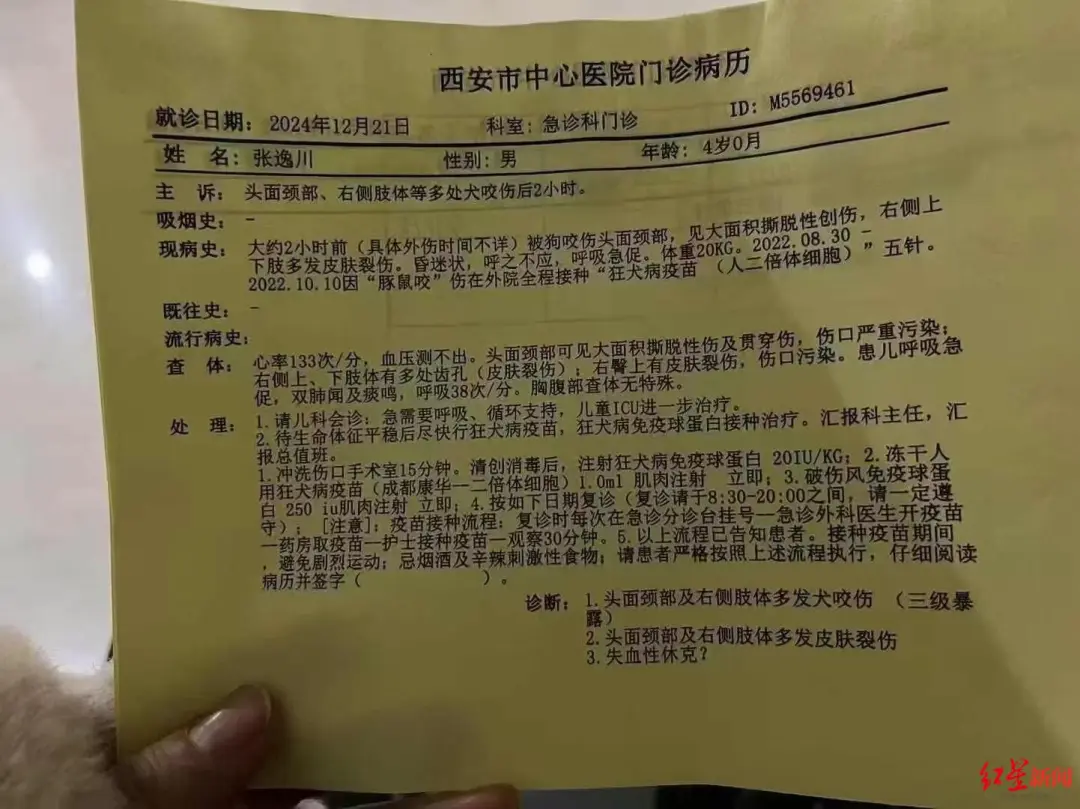 西安市中心医院门诊病历
就诊日期：2024年12月21日 科室：急诊科门诊 ID：M5569461
姓 名：张逸川 性别：男 年龄：4岁0月
主 诉：头面颈部、右侧肢体等多处犬咬伤后2小时。
吸烟史：-
现病史：大约2小时前（具体外伤时间不详）被狗咬伤头面颈部，见大面积撕脱性创伤，右侧上
下肢多发皮肤裂伤。昏迷状，呼之不应，呼吸急促。体重20KG。2022.08.30 -
2022.10.10因“豚鼠咬”伤在外院全程接种“狂犬病疫苗 （人二倍体细胞）”五针。
既往史：-
流行病史：
查 体：心率133次/分，血压测不出。头面颈部可见大面积撕脱性伤及贯穿伤，伤口严重污染；
右侧上、下肢体有多处齿孔（皮肤裂伤）；右臀上有皮肤裂伤，伤口污染。患儿呼吸急
促，双肺闻及痰鸣，呼吸38次/分。胸腹部查体无特殊。
处 理：1.请儿科会诊：急需要呼吸、循环支持，儿童ICU进一步治疗。
2.待生命体征平稳后尽快行狂犬病疫苗，狂犬病免疫球蛋白接种治疗。汇报科主任，汇
报总值班。
1.冲洗伤口手术室15分钟。清创消毒后，注射狂犬病免疫球蛋白 20IU/KG；2.冻干人
用狂犬病疫苗（成都康华—二倍体细胞）1.0ml 肌肉注射 立即；3.破伤风免疫球蛋
白 250 iu肌肉注射 立即；4.按如下日期复诊（复诊请于8:30-20:00之间，请一定遵
守）；[注意]：疫苗接种流程：复诊时每次在急诊分诊台挂号—急诊外科医生开疫苗
—药房取疫苗—护士接种疫苗—观察30分钟。5.以上流程已告知患者。接种疫苗期间
，避免剧烈运动；忌烟酒及辛辣刺激性食物；请患者严格按照上述流程执行，仔细阅读
病历并签字（ ）。
诊断：1.头面颈部及右侧肢体多发犬咬伤 （三级暴
露）
2.头面颈部及右侧肢体多发皮肤裂伤
3.失血性休克？
红星新闻